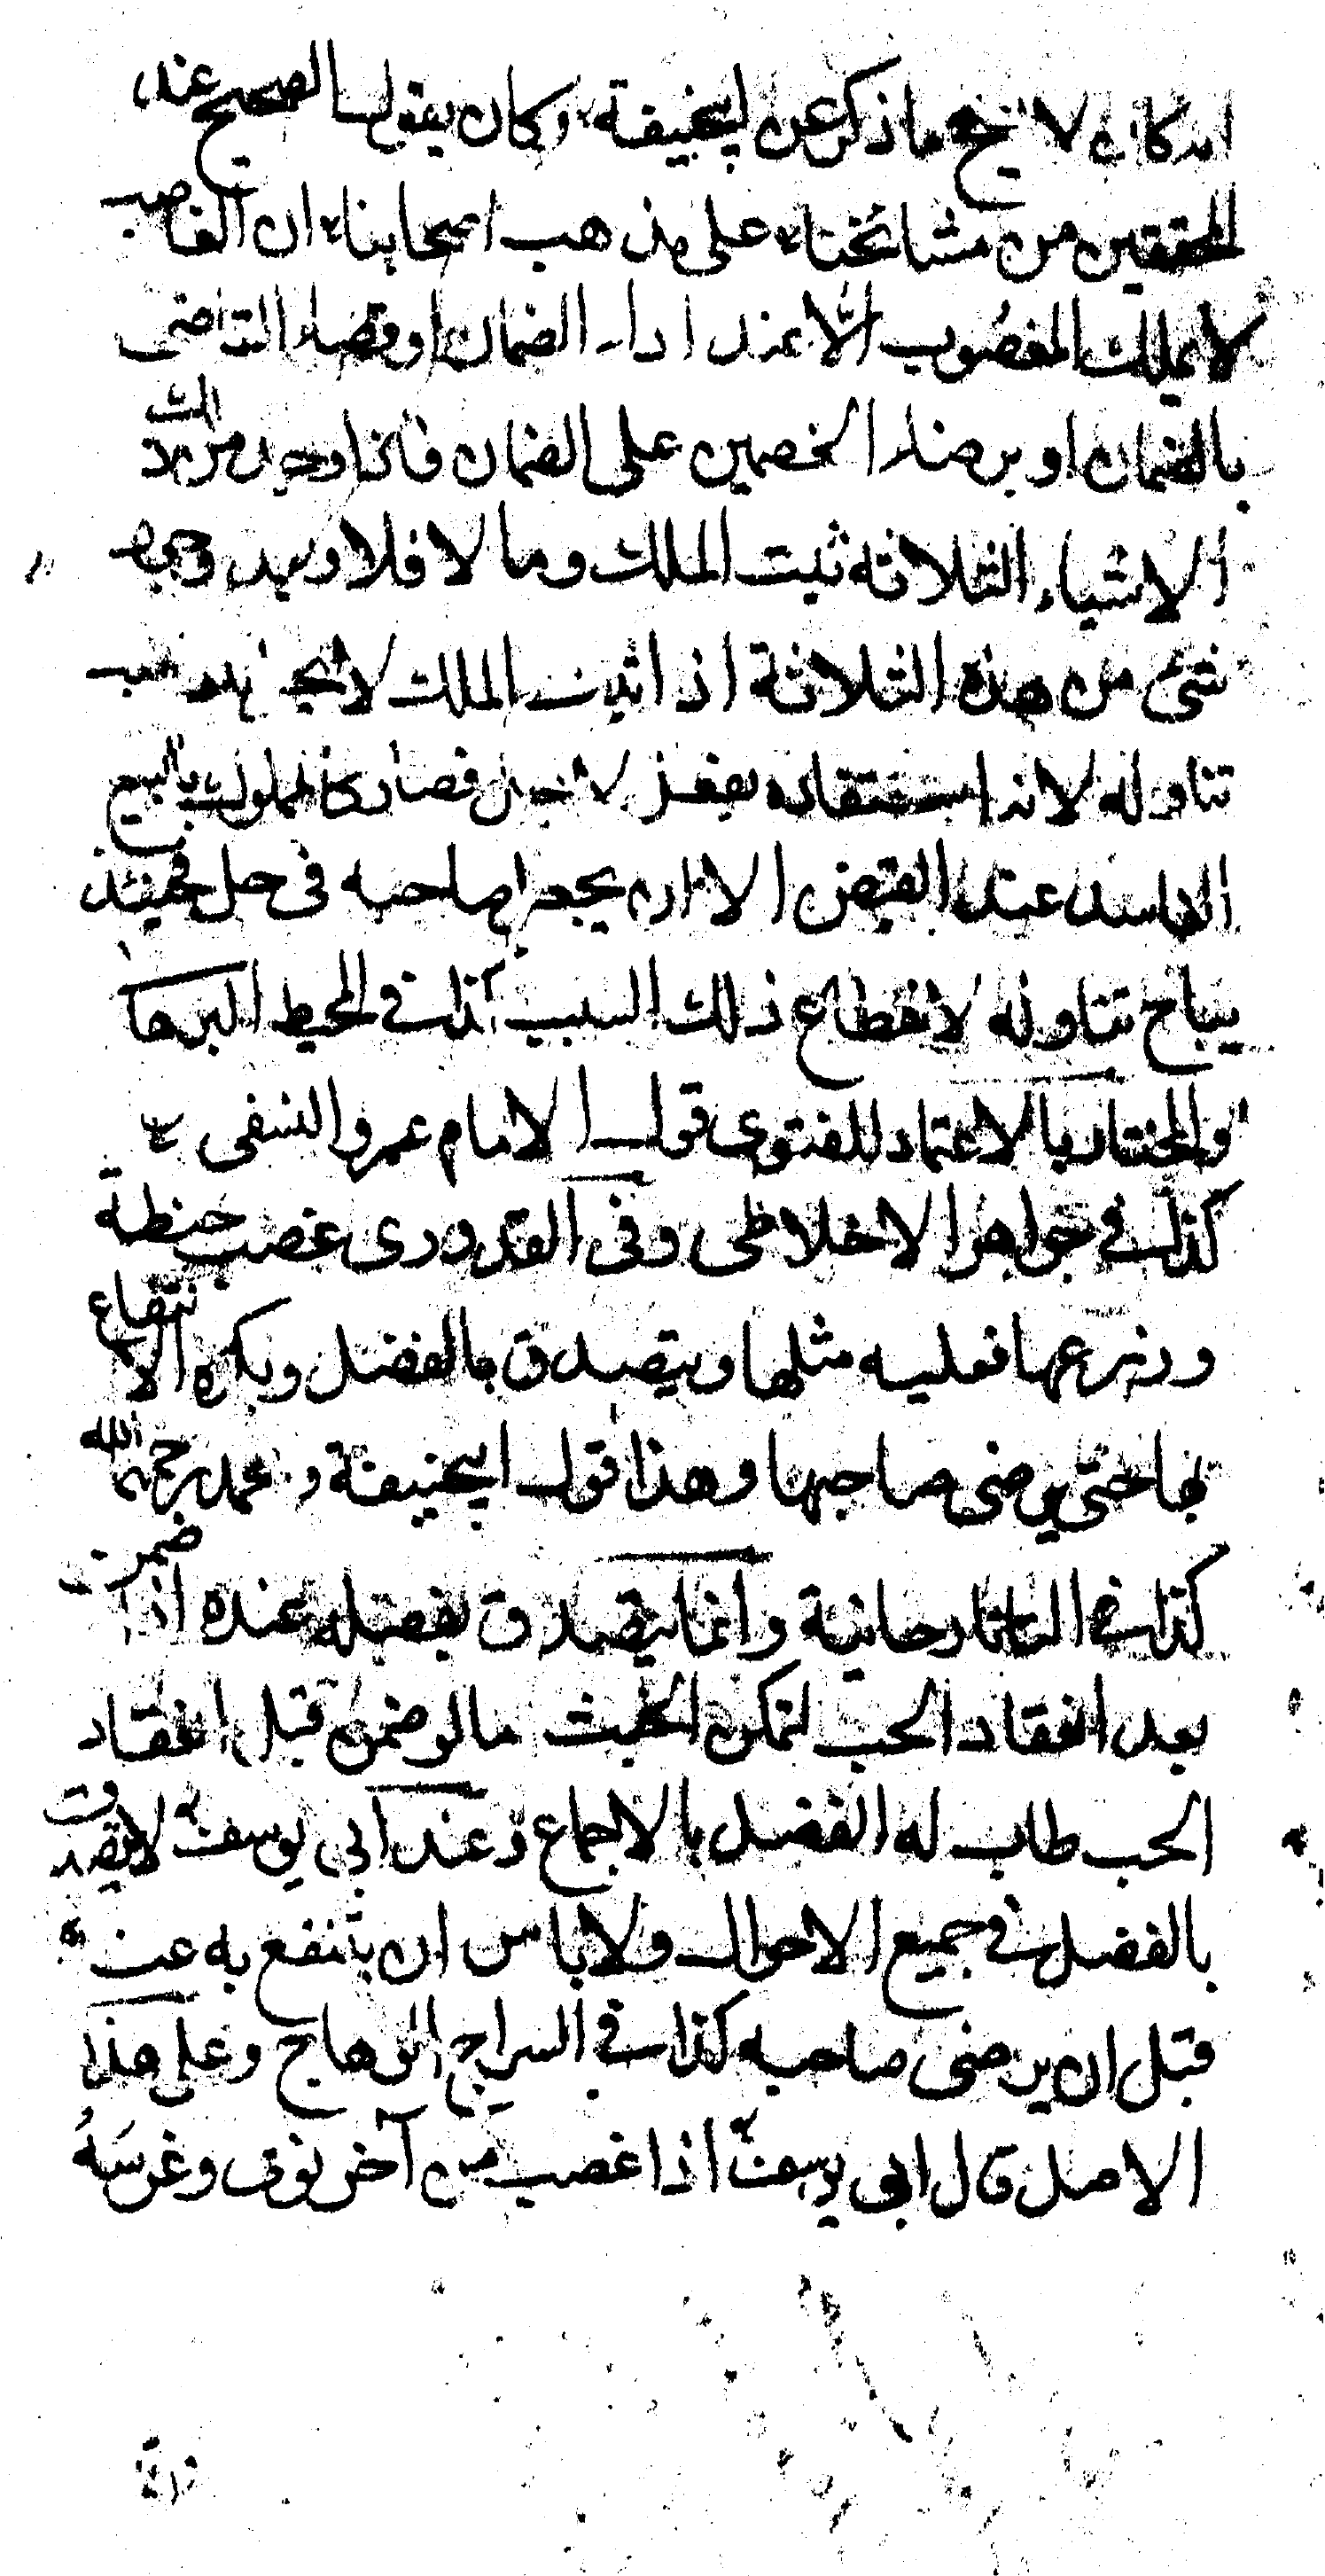 انه كان لا يصح ما ذكر عن ابيحنيفة وكان يقول الصحيح عند
المحققين من مشائخنا على مذهب اصحابنا ان الغاصب
لا يملك المغصوب الا عند اداء الضمان او قضاء القاضى
بالضمان او برضاء الخصمين على الضمان فاذا وجد من هذه
الاشياء الثلاثة ثبت الملك وما لا فلا وبعد وجود
شئ من هذه الثلاثة اذا ثبت الملك لا يحل للغاصب
تناوله لانه استفاده بعقد فصار كالمملوك بالبيع
الفاسد عند القبض الا ان يجعل صاحبه فى حل فحينئذ
يباح تناوله لانقطاع ذلك السبب كذا فى المحيط البرها
والمختار بالاعتماد للفتوى قول الامام عمر والنسفى
كذا فى جواهر الاخلاطى وفى القدورى غصب حنطة
وزرعها فعليه مثلها ويتصدق بالفضل ويكره الانتفاع
بها حتى يرضى صاحبها وهذا قول ابيحنيفة و محمد رحمهما الله
كذا فى التاتارخانية وانما يتصدق بفضله عنده اذا ضمن
بعد انعقاد الحب لتمكن الخبث مالو ضمن قبل انعقاد
الحب طاب له الفضل بالاجماع وعند ابى يوسف لا يتصدق
بالفضل فى جميع الاحوال ولا باس ان ينتفع به عنده
قبل ان يرضى صاحبه كذا فى السراج الوهاج وعلى هذا
الاصل قال ابى يوسف اذا غصب من آخر نوى وغرسَهُ